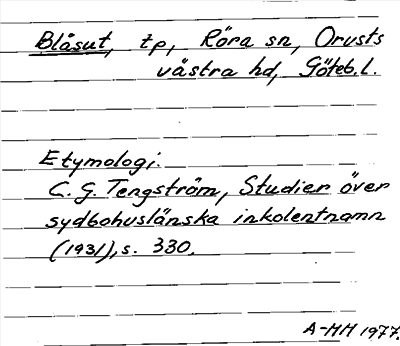 Blåsut, tp, Röra sn, Orusts
västra hd, Göteb. l.
Etymologi.
C. G. Tengström, Studier över
sydbohuslänska inkolentnamn
(1931), s. 330.
A-MH 1977.